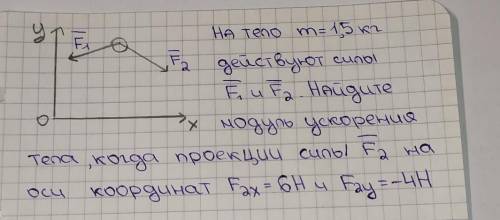 y
F̅₁
F̅₂
0
x
На тело m=1,5 кг
действуют силы
F̅₁ и F̅₂. Найдите
модуль ускорения
тела, когда проекции силы F̅₂ на
оси координат F₂ₓ=6Н и F₂y=-4Н